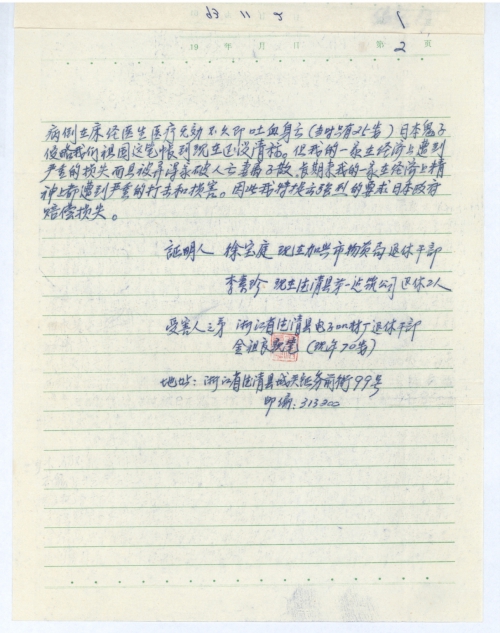 63 11 2
1
19 年 月 日 第 2 页
病倒在床经医生医疗无効不久即吐血身亡(当时只有25岁)日本鬼子
侵略我们祖国这笔帐到现在还没清祘。使我的一家在经济上遭到
严重的损失而且被弄得家破人亡妻离子散,长期来我的一家在经济上精
神上都遭到严重的打击和损害。因此我特提出强烈的要求日本政府
赔偿损失。
証明人 徐宝庭 现在加兴市物资局退休干部
李善珍 现在德清县第一建筑公司退休工人
受害人之弟 浙江省德清县电子器材厂退休干部
金祖良 (现年70岁)
地址:浙江省德清县城关镇务前街99号
邮编:313200